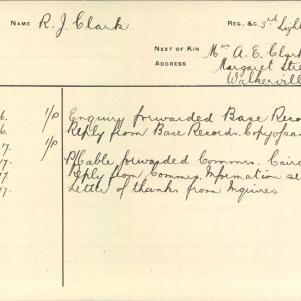 NAME R. J. Clark REG. &C. 3rd Light
NEXT OF KIN Mrs A. E. Clark
ADDRESS Margaret Stre
Walkervill
6. I/P Enquiry forwarded Base Recor
6. Reply from Base Records. Copy of
17. I/P
17. P/Cable forwarded Commrs. Cairo
17 Reply from Commrs. Information se
17. Letter of thanks from Inquirer